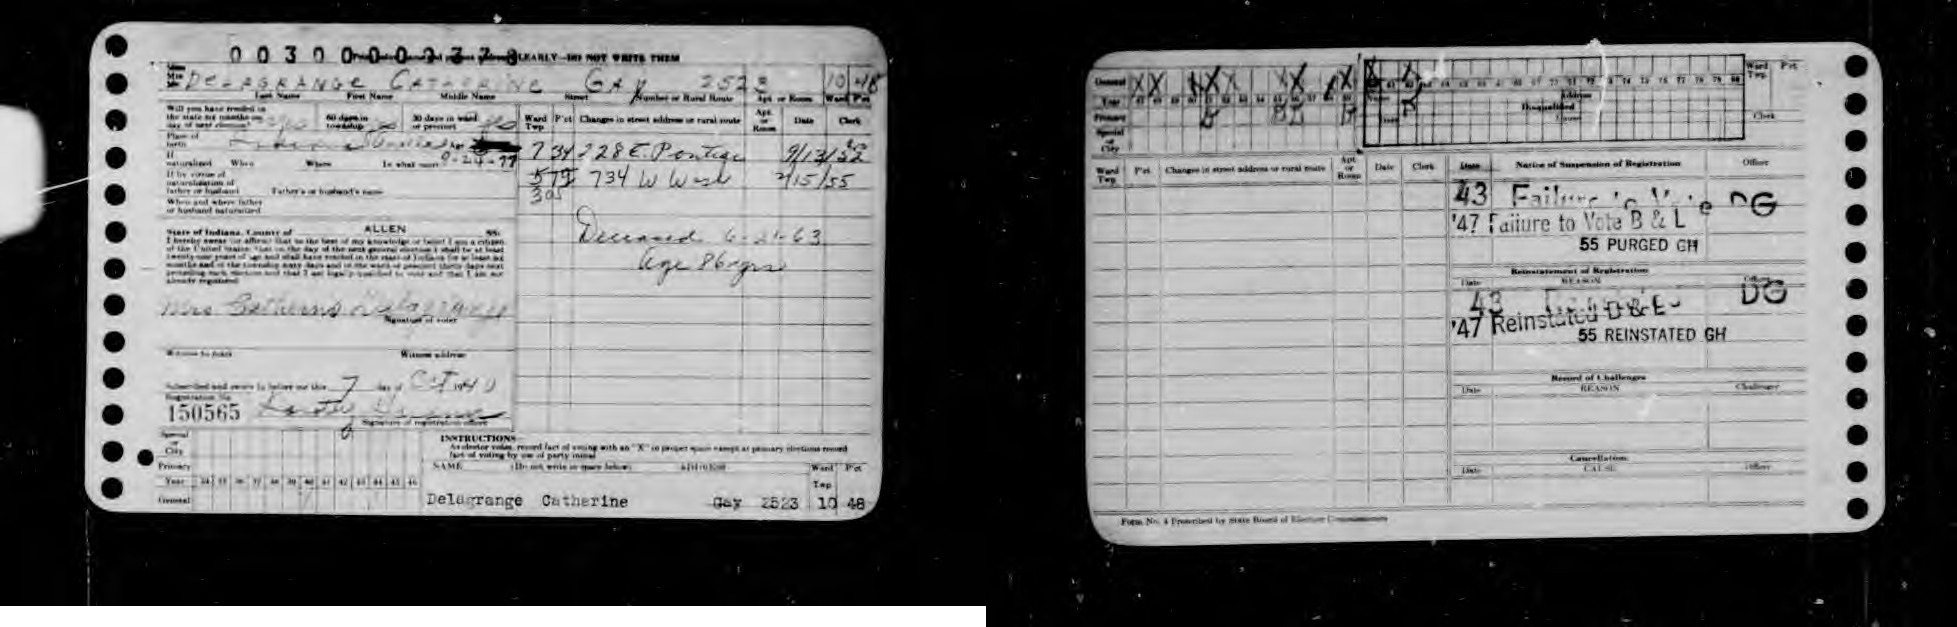 0030000373
CLEARLY—DO NOT WRITE THEM
DELAGRANGE CATHERINE GAY 2523 10 48
Last Name First Name Middle Name Street Number or Rural Route Apt. or Room Ward P'ct
Will you have resided in the state six months on day of next election? yes 60 days in township 30 days in ward or precinct
Ward Twp P'ct Changes in street address or rural route Apt. or Room Date Clerk
Place of birth Indiana Age 9-24-77
If naturalized When Where In what court
7 34 228 E. Pontiac 9/13/52
If by virtue of naturalization of father or husband Father's or husband's name
734 W Wash 2/15/55
305
When and where father or husband naturalized
State of Indiana, County of ALLEN SS:
I hereby swear (or affirm) that to the best of my knowledge or belief I am a citizen
of the United States; that on the day of the next general election I shall be at least
twenty-one years of age and shall have resided in the state of Indiana for at least six
months and of the township sixty days and in the ward or precinct thirty days next
preceding such election and that I am legally qualified to vote and that I am not
already registered.
Deceased 6-21-63
Age 86 yrs
Mrs Catherine Delagrange
Signature of voter
Witness to mark Witness address
Subscribed and sworn to before me this 7 day of Oct 1940
Registration No.
150565
Signature of registration officer
Special or City
Primary
Year 34 35 36 37 38 39 40 41 42 43 44 45 46
General
INSTRUCTIONS
As elector votes, record fact of voting with an "X" in proper space except at primary elections record
fact of voting by use of party initial
NAME (Do not write in space below) ADDRESS Ward Twp P'ct
Delagrange Catherine Gay 2523 10 48
General X X X X X X X X X X
Year
Primary
Special or City
Disqualified
Ward Twp. P'ct
Clerk
Ward Twp. P'ct Changes in street address or rural route Apt. or Room Date Clerk
Date Notice of Suspension of Registration Officer
43 Failure to Vote DG
'47 Failure to Vote B & L
55 PURGED GH
Reinstatement of Registration
Date REASON Officer
43 DG
'47 Reinstated
55 REINSTATED GH
Record of Challenges
Date REASON Challenger
Cancellation
Date CAUSE Officer
Form No. 4 Prescribed by State Board of Election Commissioners